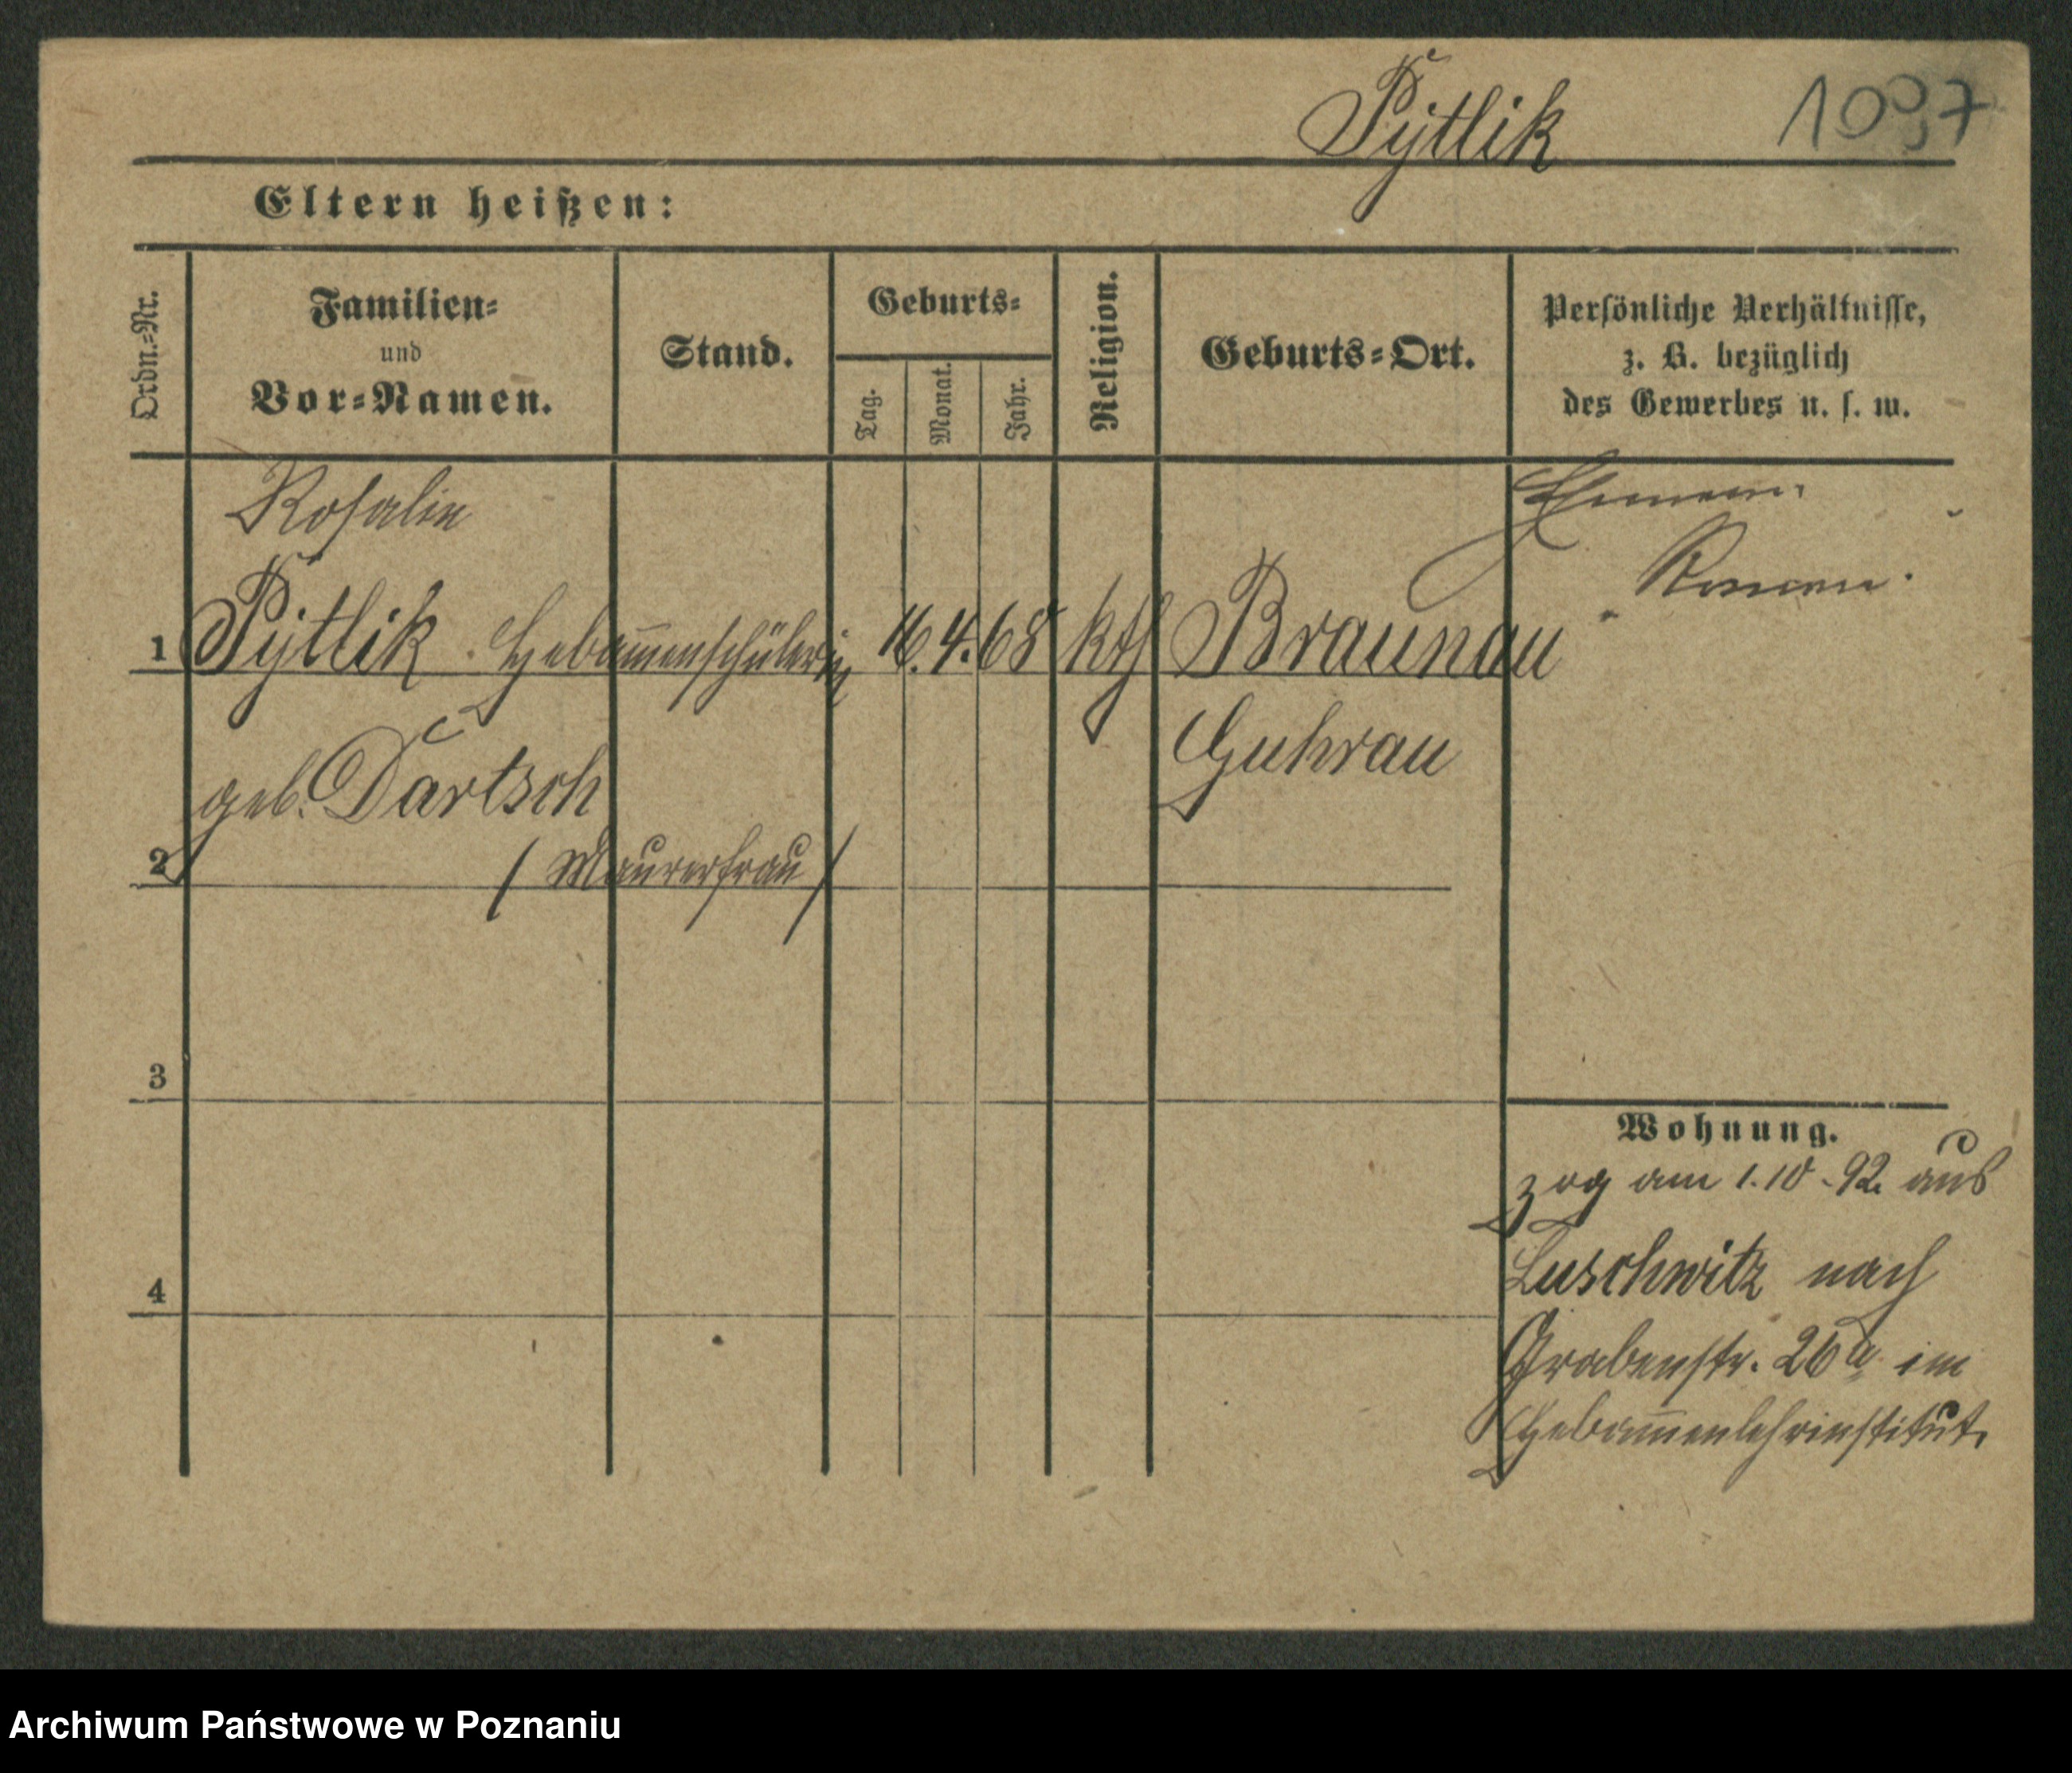 Pÿtlik 1097
Eltern heißen:
Ordn.-Nr.
Familien-
und
Vor-Namen.
Stand.
Geburts-
Tag.
Monat.
Jahr.
Religion.
Geburts-Ort.
Persönliche Verhältnisse,
z. B. bezüglich
des Gewerbes u. s. w.
Rosalie
Ehemann
Roman
1 Pÿtlik Hebam̅enschülerin 16. 4. 68 kth Braunau
geb. Dartsch Guhrau
2 (Maurerfrau)
3
4
Wohnung.
zog am 1.10.92. aus
Luschwitz nach
Grabenstr. 26a im
Hebam̅enlehrinstitut.
Archiwum Państwowe w Poznaniu